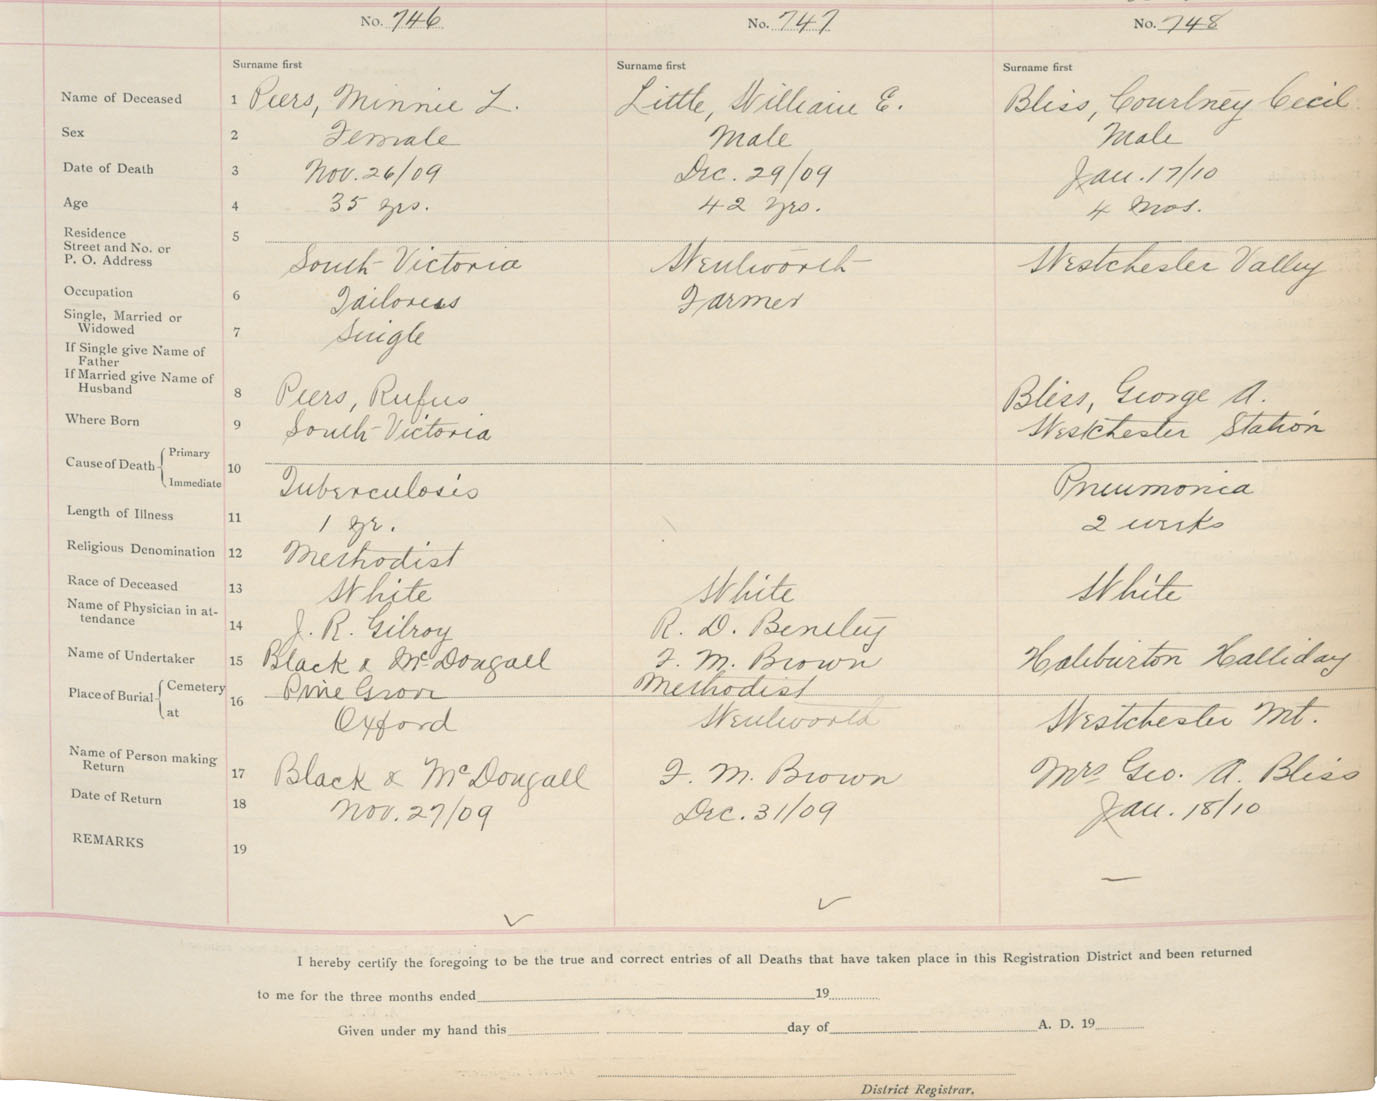 No. 746 No. 747 No. 748
Surname first Surname first Surname first
Name of Deceased 1 Piers, Minnie L. Little, William E. Bliss, Courtney Cecil
Sex 2 Female Male Male
Date of Death 3 Nov. 26/09 Dec. 29/09 Jan. 17/10
Age 4 35 yrs. 42 yrs. 4 mos.
Residence 5
Street and No. or
P. O. Address South Victoria Wentworth Westchester Valley
Occupation 6 Tailoress Farmer
Single, Married or
Widowed 7 Single
If Single give Name of
Father
If Married give Name of
Husband 8 Piers, Rufus Bliss, George A.
Where Born 9 South Victoria Westchester Station
Cause of Death Primary
Immediate 10 Tuberculosis Pneumonia
Length of Illness 11 1 yr. 2 weeks
Religious Denomination 12 Methodist
Race of Deceased 13 White White White
Name of Physician in at-
tendance 14 J. R. Gilroy R. D. Bentley
Name of Undertaker 15 Black & McDougall F. M. Brown Haliburton Halliday
Place of Burial Cemetery 16 Pine Grove Methodist
at Oxford Wentworth Westchester Mt.
Name of Person making
Return 17 Black & McDougall F. M. Brown Mrs Geo. A. Bliss
Date of Return 18 Nov. 27/09 Dec. 31/09 Jan. 18/10
REMARKS 19
I hereby certify the foregoing to be the true and correct entries of all Deaths that have taken place in this Registration District and been returned
to me for the three months ended 19
Given under my hand this day of A. D. 19
District Registrar.